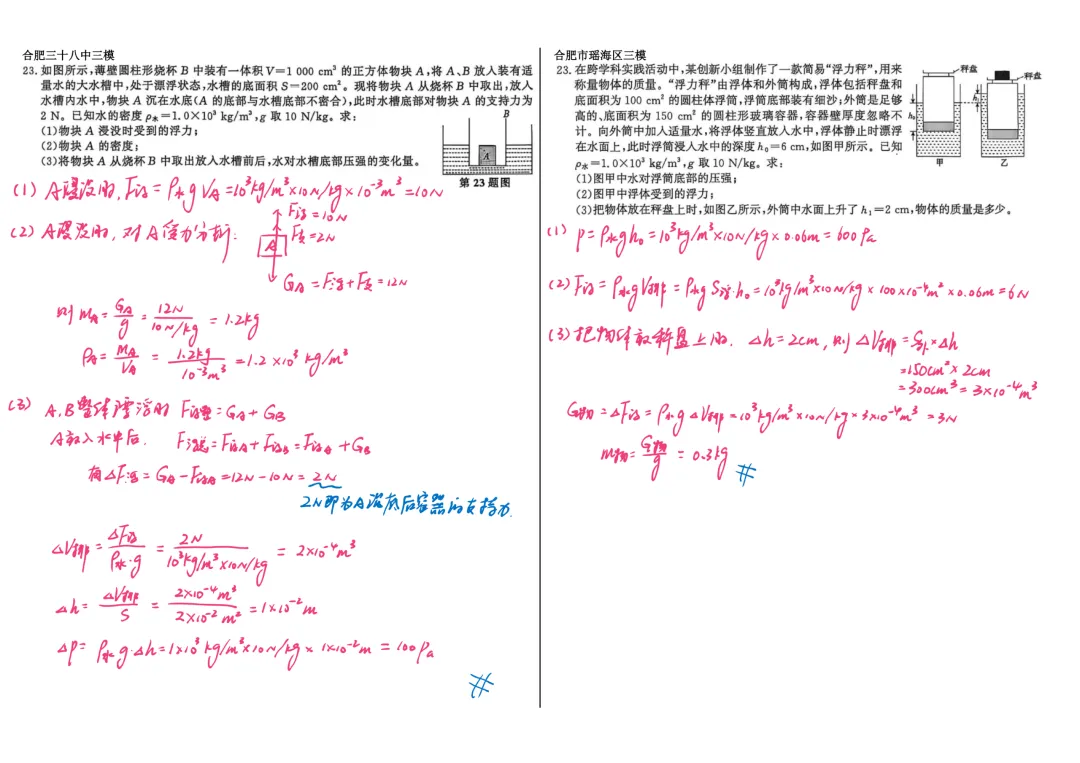 合肥三十八中三模
23. 如图所示,薄壁圆柱形烧杯 B 中装有一体积 V=1 000 cm³ 的正方体物块 A,将 A、B 放入装有适
量水的大水槽中,处于漂浮状态,水槽的底面积 S=200 cm²。现将物块 A 从烧杯 B 中取出,放入
水槽内水中,物块 A 沉在水底(A 的底部与水槽底部不密合),此时水槽底部对物块 A 的支持力为
2 N。已知水的密度 ρ水=1.0×10³ kg/m³,g 取 10 N/kg。求:
(1)物块 A 浸没时受到的浮力;
(2)物块 A 的密度;
(3)将物块 A 从烧杯 B 中取出放入水槽前后,水对水槽底部压强的变化量。
B
A
第 23 题图
(1) A浸没时, F浮=ρ水gVA=10³kg/m³×10N/kg×10⁻³m³=10N
(2) A浸没时, 对A受力分析:
F浮=10N
F支=2N
A
GA=F浮+F支=12N
则 mA=GA/g=12N/10N/kg=1.2kg
ρA=mA/VA=1.2kg/10⁻³m³=1.2×10³kg/m³
(3) A、B整体漂浮时 F浮整=GA+GB
A放入水中后. F浮总=F浮A+F浮B=F浮A+GB
有ΔF浮=GA-F浮A=12N-10N=2N
2N即为A沉底后容器的支持力.
ΔV排=ΔF浮/ρ水·g=2N/10³kg/m³×10N/kg=2×10⁻⁴m³
Δh=ΔV排/S=2×10⁻⁴m³/2×10⁻²m²=1×10⁻²m
Δp=ρ水g·Δh=1×10³kg/m³×10N/kg×1×10⁻²m=100Pa
合肥市瑶海区三模
23. 在跨学科实践活动中,某创新小组制作了一款简易“浮力秤”,用来
称量物体的质量。“浮力秤”由浮体和外筒构成,浮体包括秤盘和
底面积为 100 cm² 的圆柱体浮筒,浮筒底部装有细沙;外筒是足够
高的、底面积为 150 cm² 的圆柱形玻璃容器,容器壁厚度忽略不
计。向外筒中加入适量水,将浮体竖直放入水中,浮体静止时漂浮
在水面上,此时浮筒浸入水中的深度 h₀=6 cm,如图甲所示。已知
ρ水=1.0×10³ kg/m³,g 取 10 N/kg。求:
(1)图甲中水对浮筒底部的压强;
(2)图甲中浮体受到的浮力;
(3)把物体放在秤盘上时,如图乙所示,外筒中水面上升了 h₁=2 cm,物体的质量是多少。
秤盘
秤盘
h₀
h₁
甲
乙
(1) p=ρ水gh₀=10³kg/m³×10N/kg×0.06m=600Pa
(2) F浮=ρ水gV排=ρ水gS浮·h₀=10³kg/m³×10N/kg×100×10⁻⁴m²×0.06m=6N
(3) 把物体放秤盘上时, Δh=2cm, 则ΔV排=S外×Δh
=150cm²×2cm
=300cm³=3×10⁻⁴m³
G物=ΔF浮=ρ水gΔV排=10³kg/m³×10N/kg×3×10⁻⁴m³=3N
m物=G物/g=0.3kg